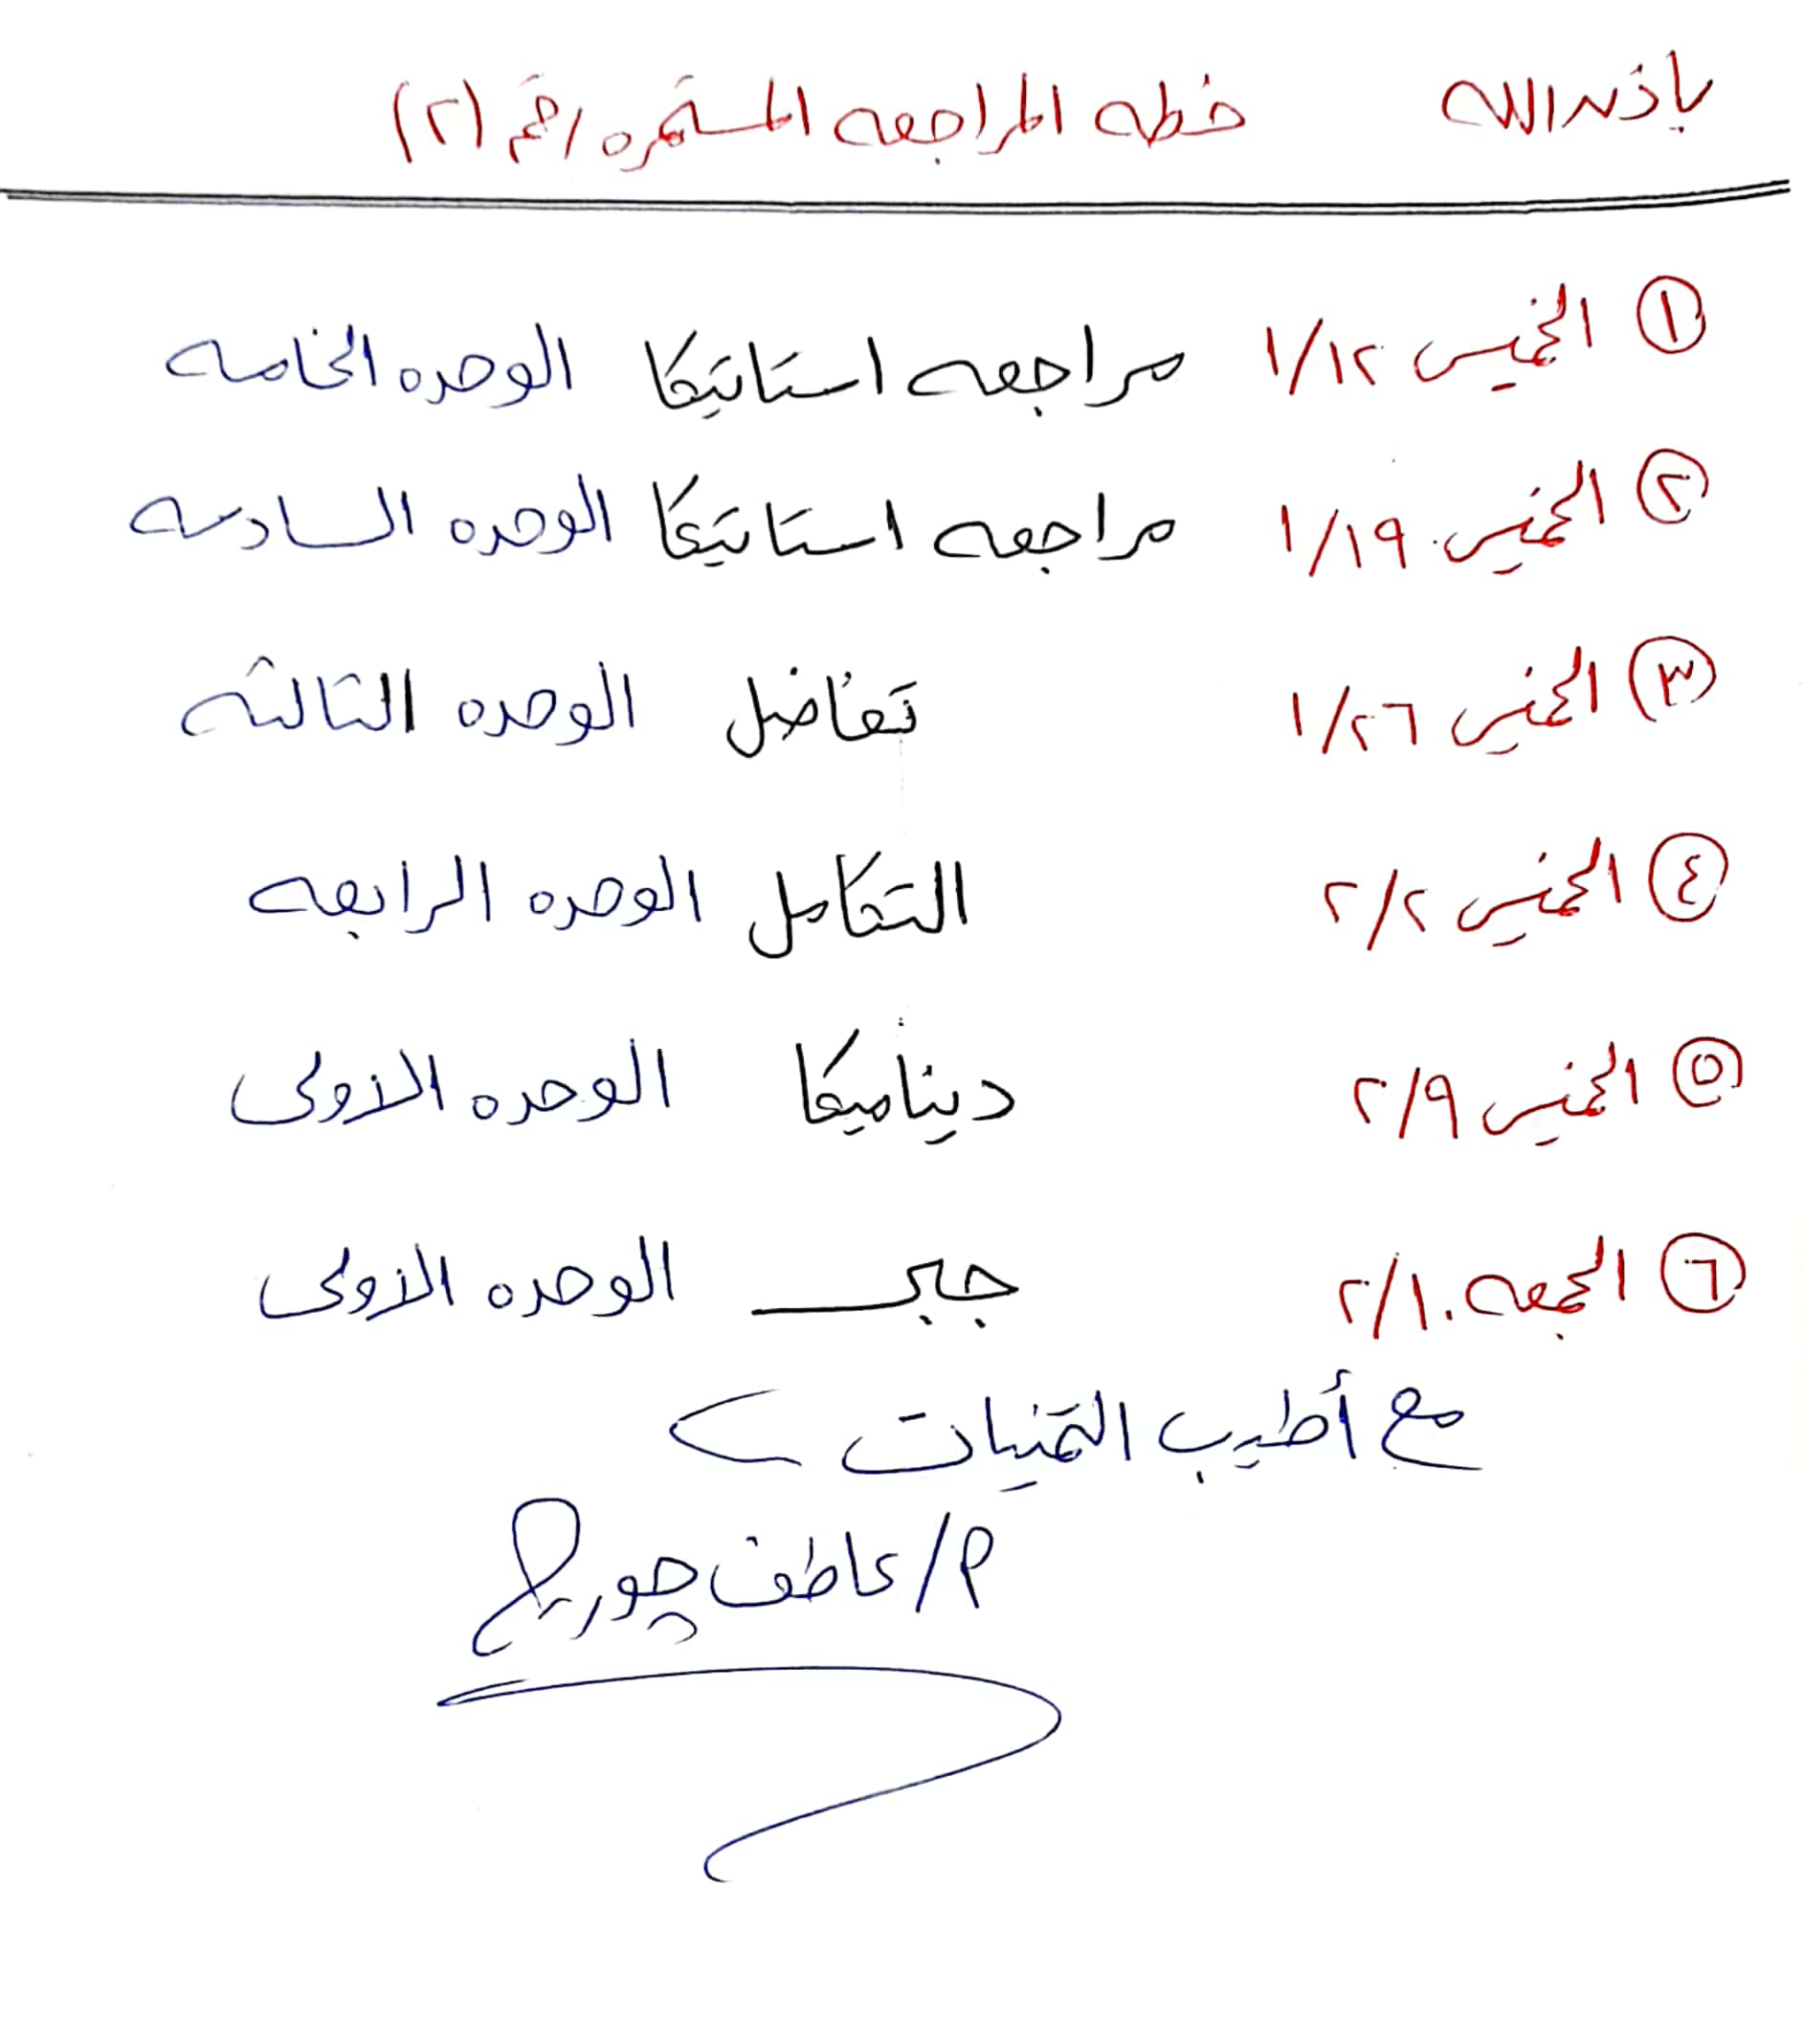 بإذن الله خطه المراجعه المستمره رقم (٢)
١ الخميس ١/١٢ مراجعه استاتيكا الوحده الخامسه
٢ الخميس ١/١٩ مراجعه استاتيكا الوحده السادسه
٣ الخميس ١/٢٦ تفاضل الوحده الثالثه
٤ الخميس ٢/٢ التكامل الوحده الرابعه
٥ الخميس ٢/٩ ديناميكا الوحده الأولى
٦ الجمعه ٢/١٠ جبر الوحده الأولى
مع أطيب التمنيات
م/عاطف جوريج